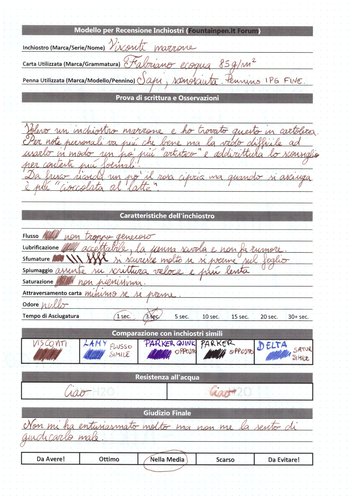 Modello per Recensione Inchiostri (Fountainpen.it Forum)
Inchiostro (Marca/Serie/Nome) Visconti marrone
Carta Utilizzata (Marca/Grammatura) Fabriano ecoqua 85g/m²
Penna Utilizzata (Marca/Modello/Pennino) pennino
Prova di scrittura e Osservazioni
Volevo un inchiostro marrone e ho trovato questo in cartoleria
Per note personali va più che bene ma la vedo difficile ad
usarlo in modo un po' più "artistico" e addirittura lo sconsiglio
per contesti più formali!
Da fresco ricorda un po' il rosa cipria ma quando si asciuga
è più "cioccolata al latte"
Caratteristiche dell'inchiostro
Flusso non troppo generoso
Lubrificazione accettabile, la penna scivola e non fa rumore
Sfumature si scurisce molto se si preme sul foglio
Spiumaggio assente su scrittura veloce e più lenta
Saturazione non pienissima
Attraversamento carta minimo se si preme
Odore nullo
Tempo di Asciugatura 1 sec. 5 sec. 10 sec. 15 sec. 20 sec. 30+ sec.
Comparazione con inchiostri simili
VISCONTI LAMY FLUSSO SIMILE PARKER QUINK OPPOSTO PARKER OPPOSTO DELTA SATUR. SIMILE
Resistenza all'acqua
Ciao Ciao
Giudizio Finale
Non mi ha entusiasmato molto ma non me la sento di
giudicarlo male.
Da Avere! Ottimo Nella Media Scarso Da Evitare!